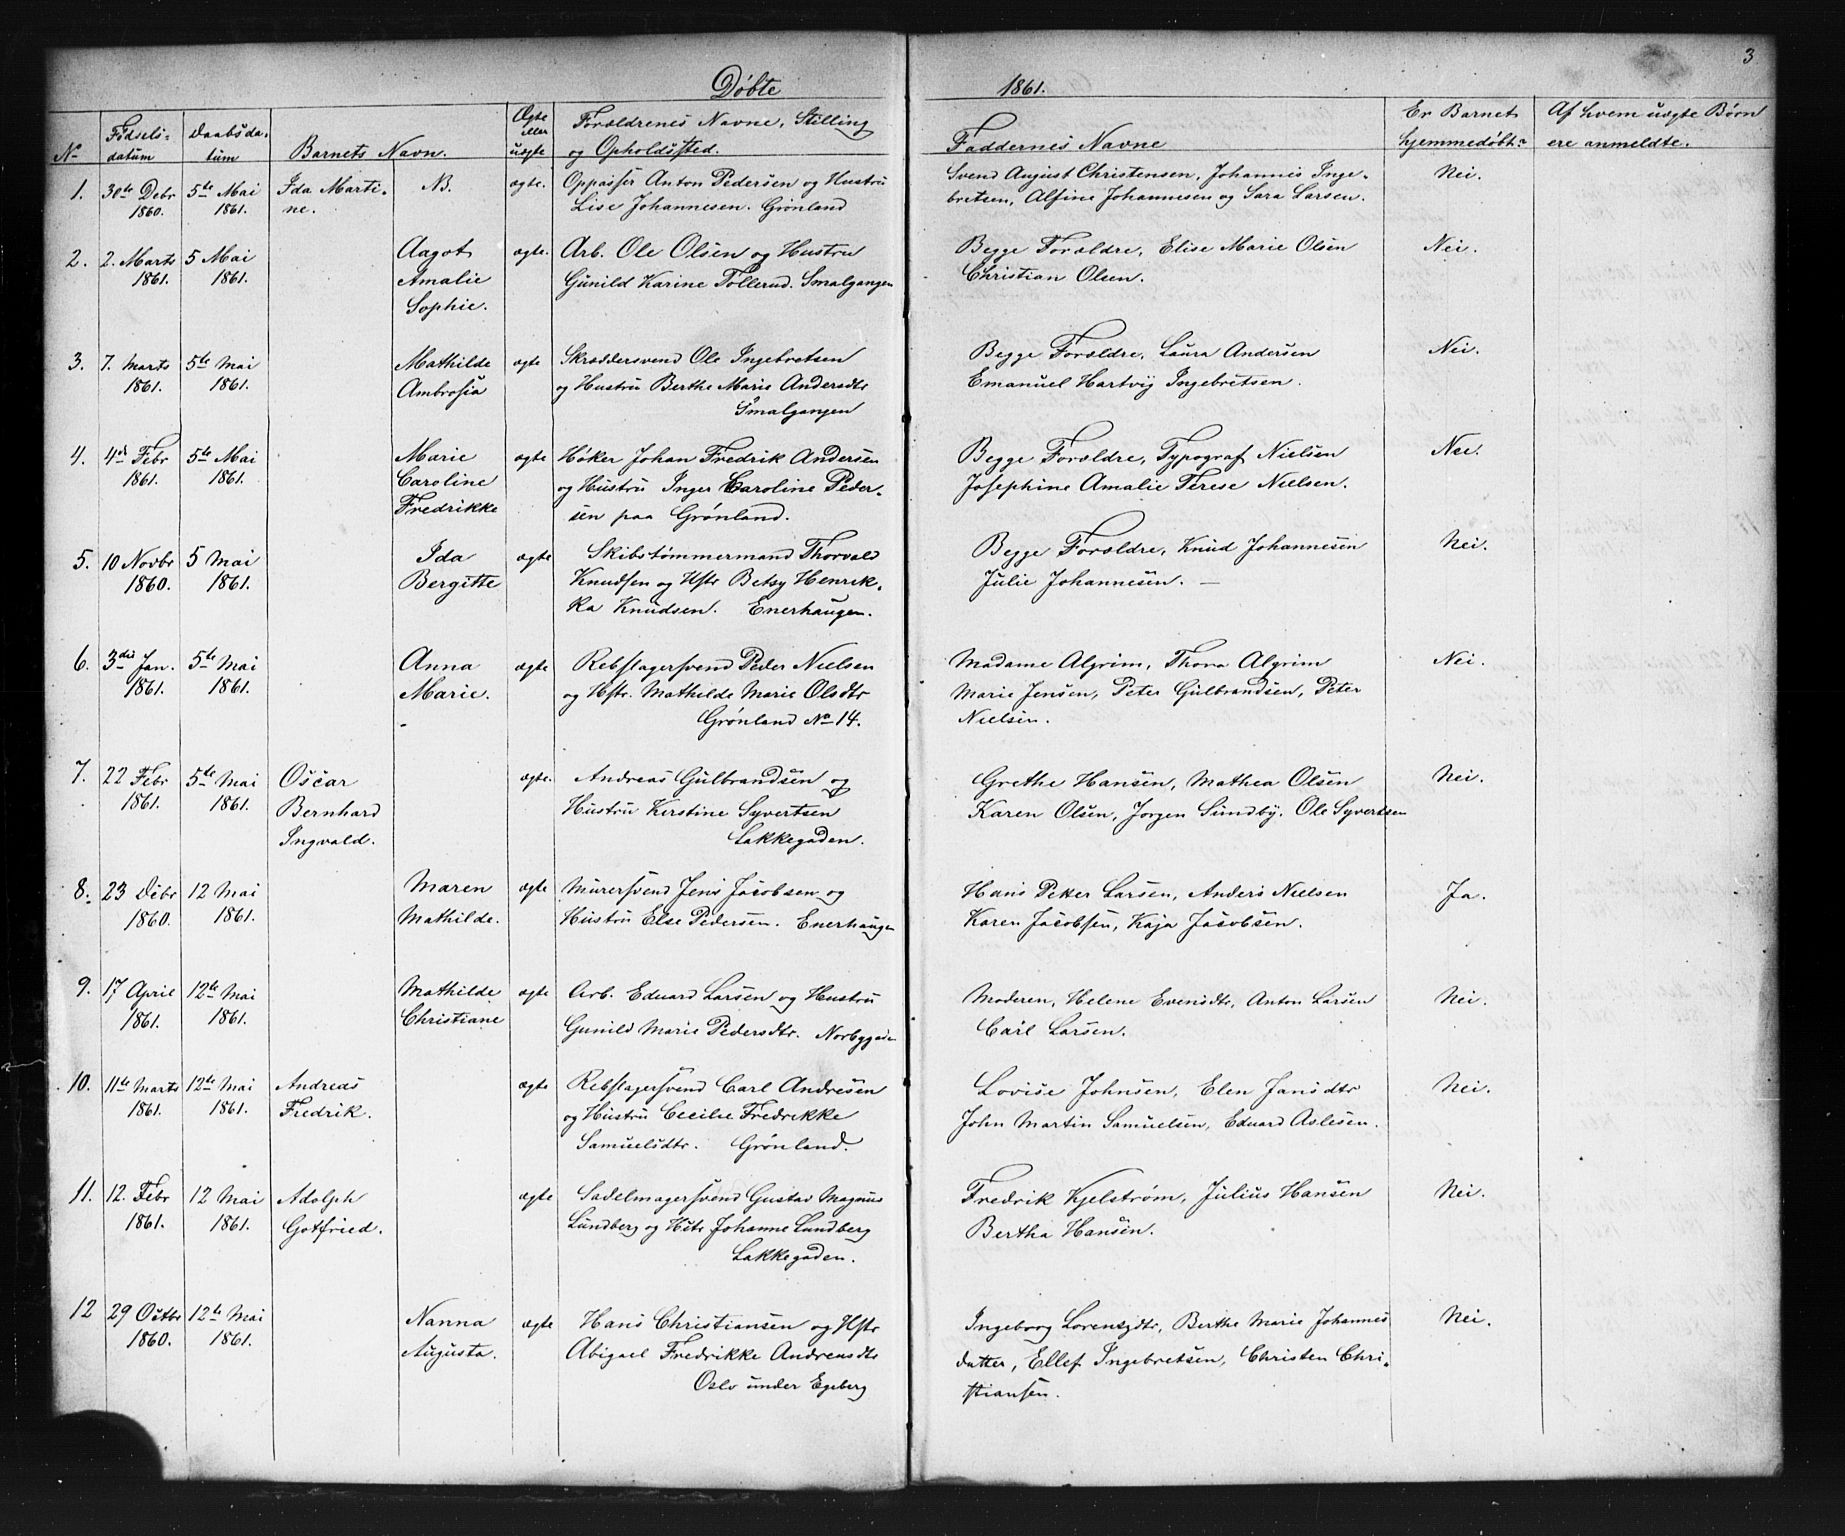 3
Døbte 1861.
No
Fødsels-
datum
Daabsda-
tum
Barnets Navn.
Ægte
eller
uægte
Forældrenes Navne, Stilling
og Opholdssted.
Faddernes Navne
Er Barnet
hjemmedøbt?
Af hvem uægte Børn
ere anmeldte.
1. 30te Debr 5te Mai Ida Marti- NB. ægte. Oppasser Anton Pedersen og Hustru Svend August Christensen, Johannes Inge- Nei.
1860. 1861. ne. Lise Johannesen. Grønland bretsen, Alfine Johannesen og Sara Larsen.
2. 2. Marts 5 Mai Aagot ægte. Arb. Ole Olsen og Hustru Begge Forældre, Elise Marie Olsen Nei.
1861. 1861. Amalie Gunild Karine Tollerud. Smalgangen Christian Olsen.
Sophie.
3. 7. Marts 5te Mai Mathilde ægte Skræddersvend Ole Ingebretsen Begge Forældre, Laura Andersen Nei.
1861. 1861. Ambrosia og Hustru Berthe Marie Andersdtr Emanuel Hartvig Ingebretsen.
Smalgangen
4. 4de Febr 5te Mai Marie ægte Høker Johan Fredrik Andersen Begge Forældre, Typograf Nielsen Nei.
1861. 1861. Caroline og Hustru Inger Caroline Peder- Josephine Amalie Terese Nielsen.
Fredrikke sen paa Grønland.
5. 10 Novbr 5 Mai Ida ægte Skibstømmermand Thorvald Begge Forældre, Knud Johannesen Nei.
1860. 1861. Bergitte Knudsen og Hstr Betsy Henrik- Julie Johannesen. —
ka Knudsen. Enerhaugen.
6. 3die Jan. 5te Mai Anna ægte Rebslagersvend Peder Nielsen Madame Algrim, Thora Algrim Nei.
1861. 1861. Marie. og Hstr. Mathilde Marie Olsdtr Marie Jensen, Peter Gulbrandsen, Peter
Grønland No 14. Nielsen.
7. 22 Febr 5te Mai Oscar ægte. Andreas Gulbrandsen og Grethe Hansen, Mathea Olsen Nei.
1861. 1861. Bernhard Hustru Kerstine Syvertsen Karen Olsen, Jørgen Sundby, Ole Syvertsen
Ingvald. Lakkegaden.
8. 23 Debr 12 Mai Maren ægte Murersvend Jens Jacobsen og Hans Peter Larsen, Anders Nielsen Ja.
1860. 1861. Mathilde. Hustru Else Pedersen. Enerhaugen Karen Jacobsen, Kaja Jacobsen.
9. 17 April 12te Mai Mathilde ægte Arb. Eduard Larsen og Hustru Moderen, Helene Evensdtr, Anton Larsen Nei.
1861. 1861. Christiane Gunild Marie Pedersdtr. Norbygaden Carl Larsen.
10. 11te Marts 12te Mai Andreas ægte Rebslagersvend Carl Andresen Lovise Johnsen, Elen Jansdtr Nei.
1861. 1861. Fredrik. og Hustru Cecilie Fredrikke John Martin Samuelsen, Eduard Aslesen.
Samuelsdtr. Grønland.
11. 12. Febr 12 Mai Adolph ægte Sadelmagersvend Gustav Magnus Fredrik Kjelstrøm, Julius Hansen Nei.
1861. 1861. Gotfried. Lundberg og Hstr Johanne Lundberg Bertha Hansen.
Lakkegaden.
12 29 Octbr 12te Mai Nanna ægte Hans Christiansen og Hstr Ingeborg Lorensdtr, Berthe Marie Johannes Nei.
1860. 1861. Augusta. Abigael Fredrikke Andreasdtr datter, Ellef Ingebretsen, Christen Chri-
Oslo under Egeberg stiansen.